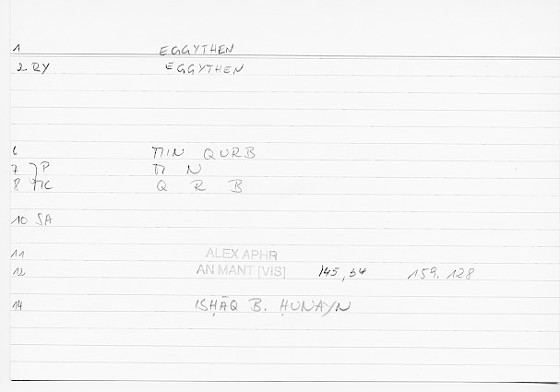 1 EGGYTHEN
2 RY EGGYTHEN
6 MIN QURB
7 P M N
8 TIC Q R B
10 SA
11 ALEX APHR
12 AN MANT [VIS] 145,34 159.128
14 ISḤĀQ B. ḤUNAYN